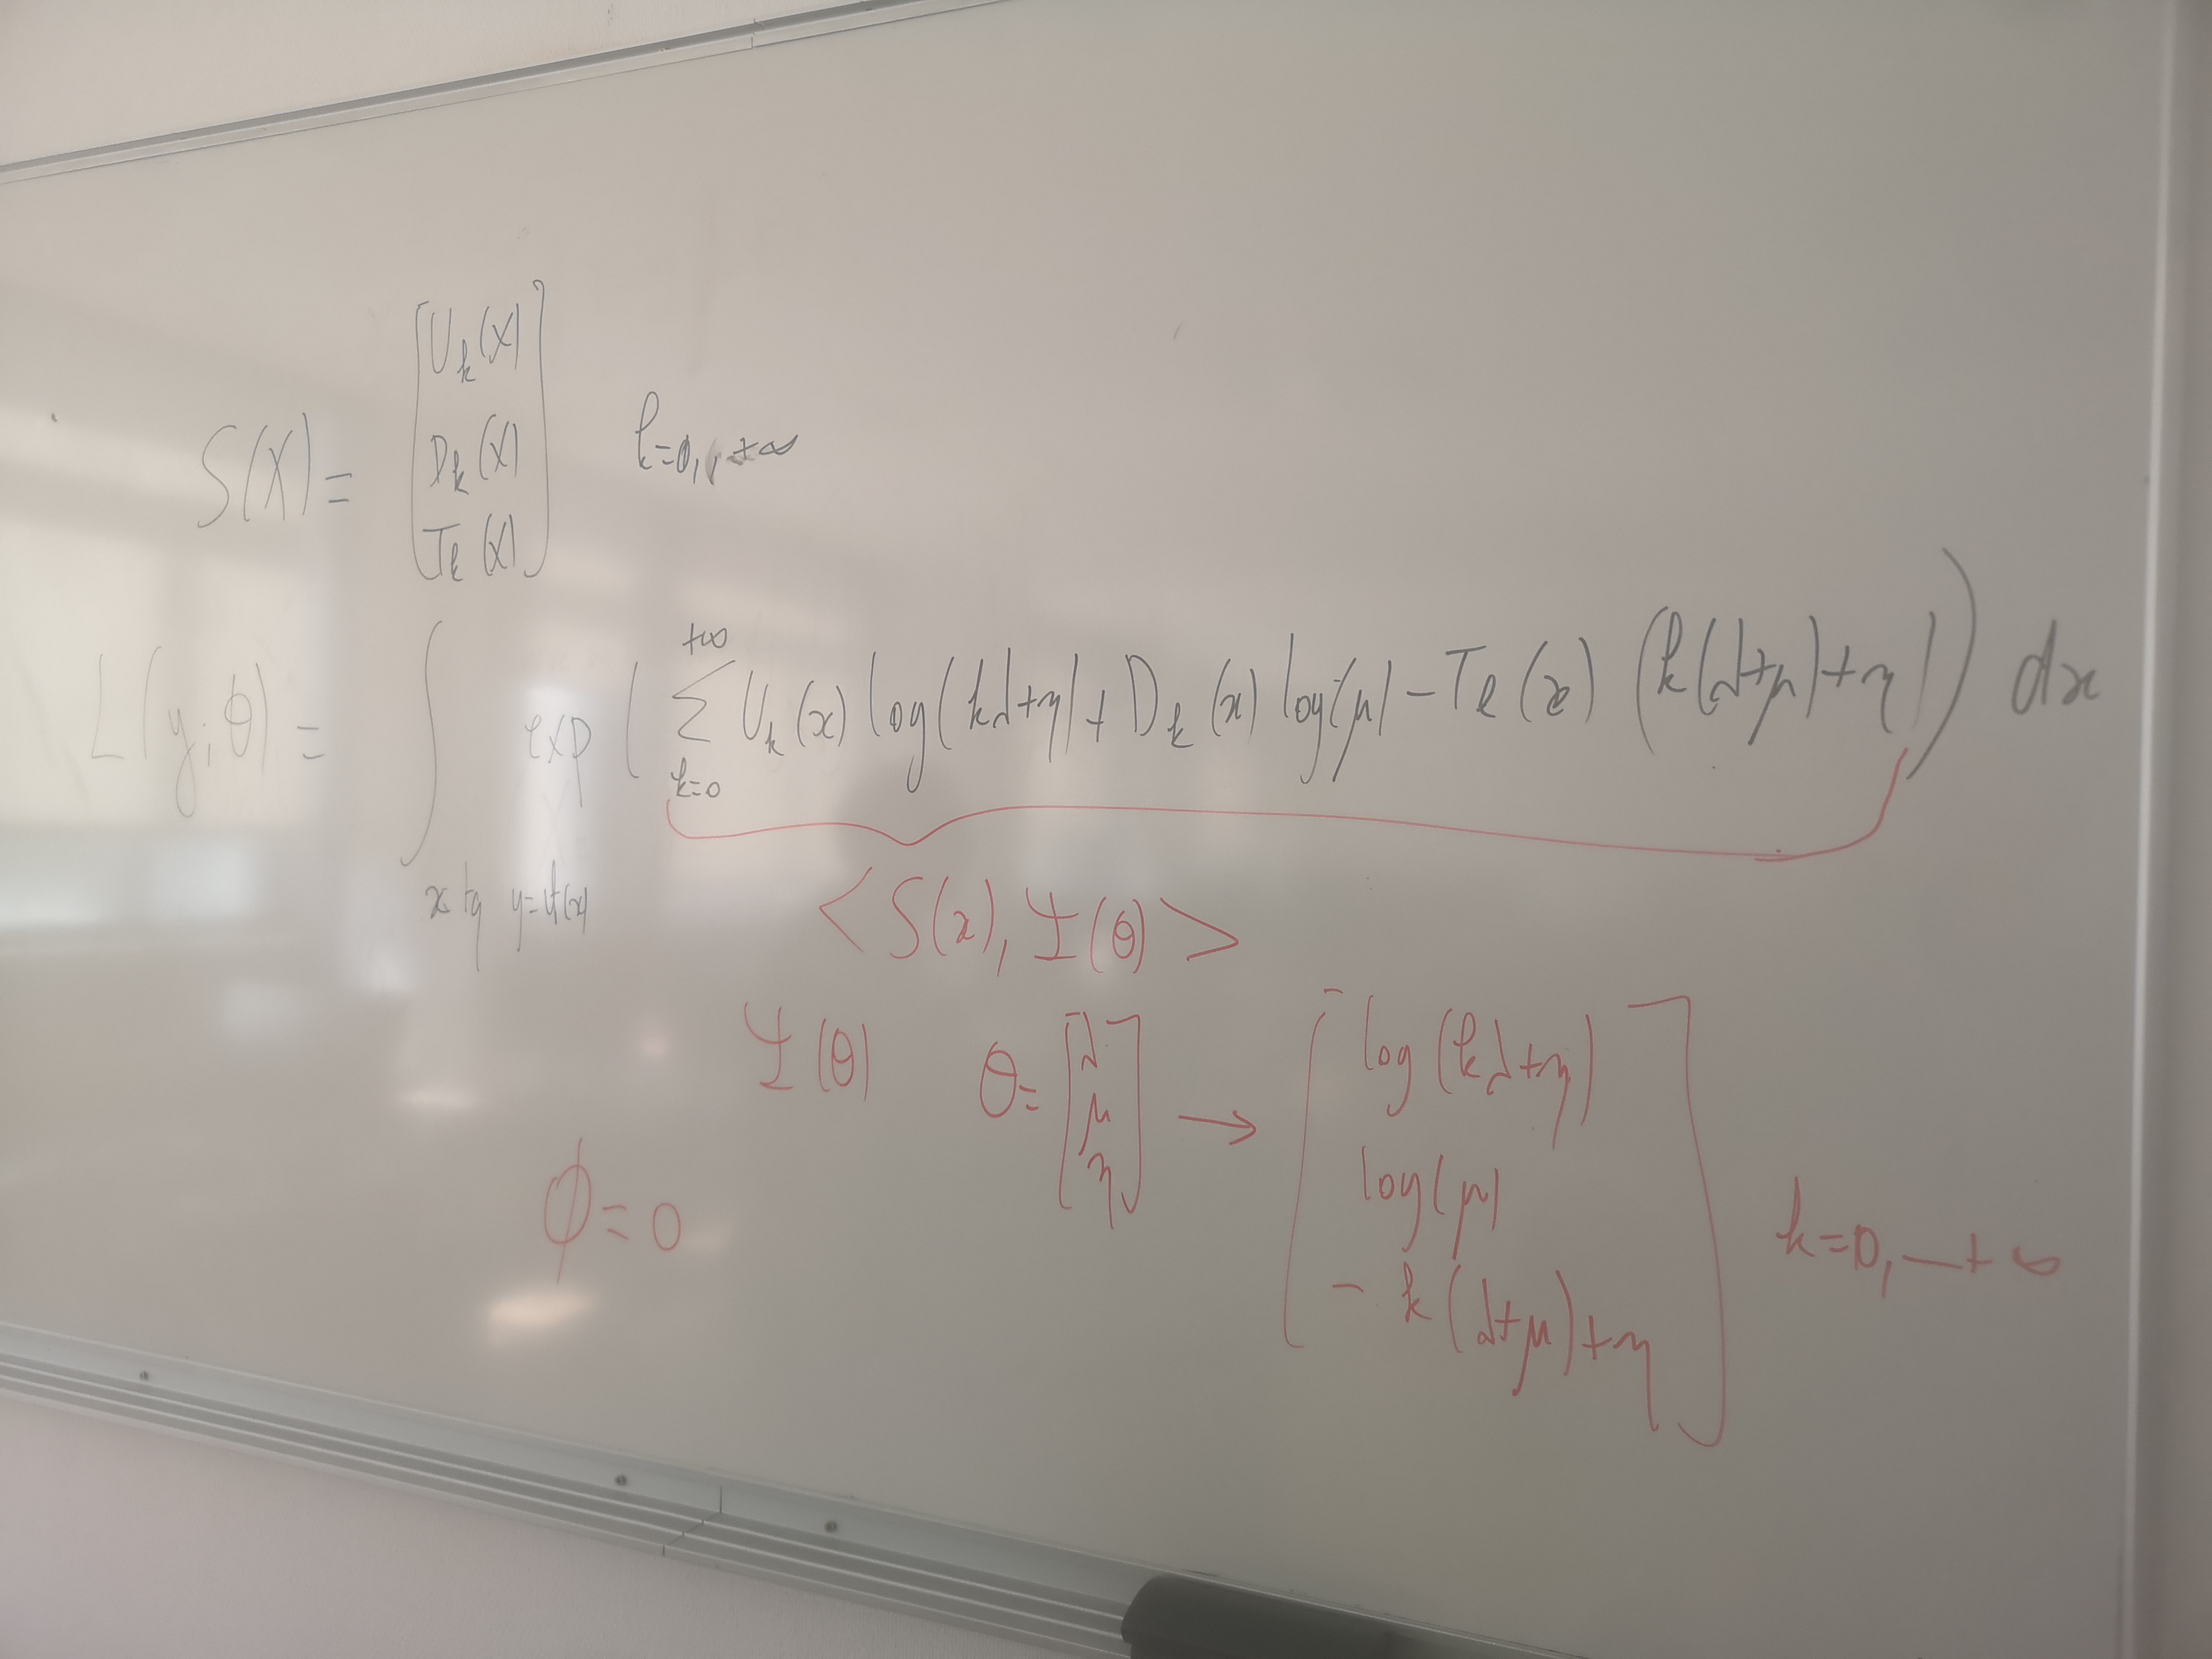 S(X) = [U_k(X) D_k(X) T_k(X)] k=0,.,+∞
L(y;θ) = ∫_{x tq y=U(x)} exp( ∑_{k=0}^{+∞} U_k(x) log(kλ+η) + D_k(x) log(μ) - T_k(x) (k(λ+μ)+η) ) dx
<S(x), Ψ(θ)>
Ψ(θ) θ= [λ μ η] → [log(kλ+η) log(μ) - k(λ+μ)+η] k=0,—+∞
ϕ=0